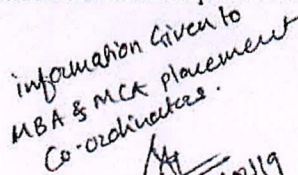 information Given to
MBA & MCA placement
Co-ordinators.